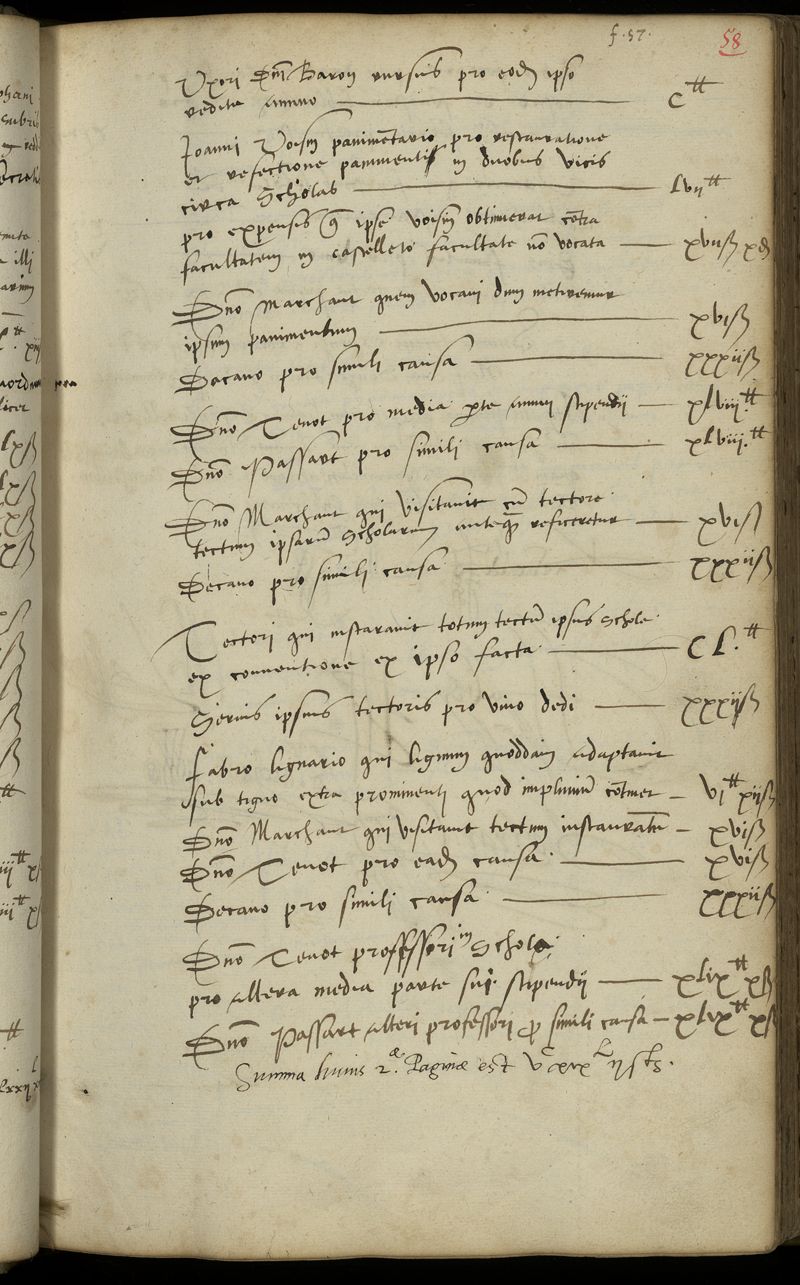 f. 57.
58
Uxori Dnī Baron rursus pro eodē ipso
reditu annuo — C tt
Joanni Voisin pavimētario pro restauratione
et refectione pavimenti in duobus vicis
circa Scholas — Lvii tt
pro expensis q̄s ipse voisin obtinuerat cōtra
facultatem in castelleto facultate nō vocata — xviiß xđ
Dnō Marchant quem vocavi dum metiremur
ipsum pavimentum — xviß
Decano pro simili causa — xxxiiß
Dnō Tenot pro media pte annui stipendii — xLviii. tt
Dnō Passart pro simili causa — xLviii. tt
Dnō Marchant qui visitavit cū tectore
tectum ipsarū Scholarum anteq̄ reficeretur — xviß
Decano pro simili causa — xxxiiß
Tectori qui instauravit totum tectū ipsius Schole
ex conventione ex ipso facta — C L. tt
Servis ipsius tectoris pro vino dedi — xxxiiß
Fabro lignario qui lignum quoddam adaptavit
sub tigno extra prominenti quod impluviū cōtinet — vi tt xiiß
Dnō Marchant qui visitavit tectum instauratū — xviß
Dnō Tenot pro eadē causa — xviß
Decano pro simili causa — xxxiiß
Dnō Tenot professori in Schola
pro altera media parte sui stipendii — xLix tt xß
Dnō Passart alteri professori p simili causa — xLix tt xß
Summa huius 2.æ Paginæ est